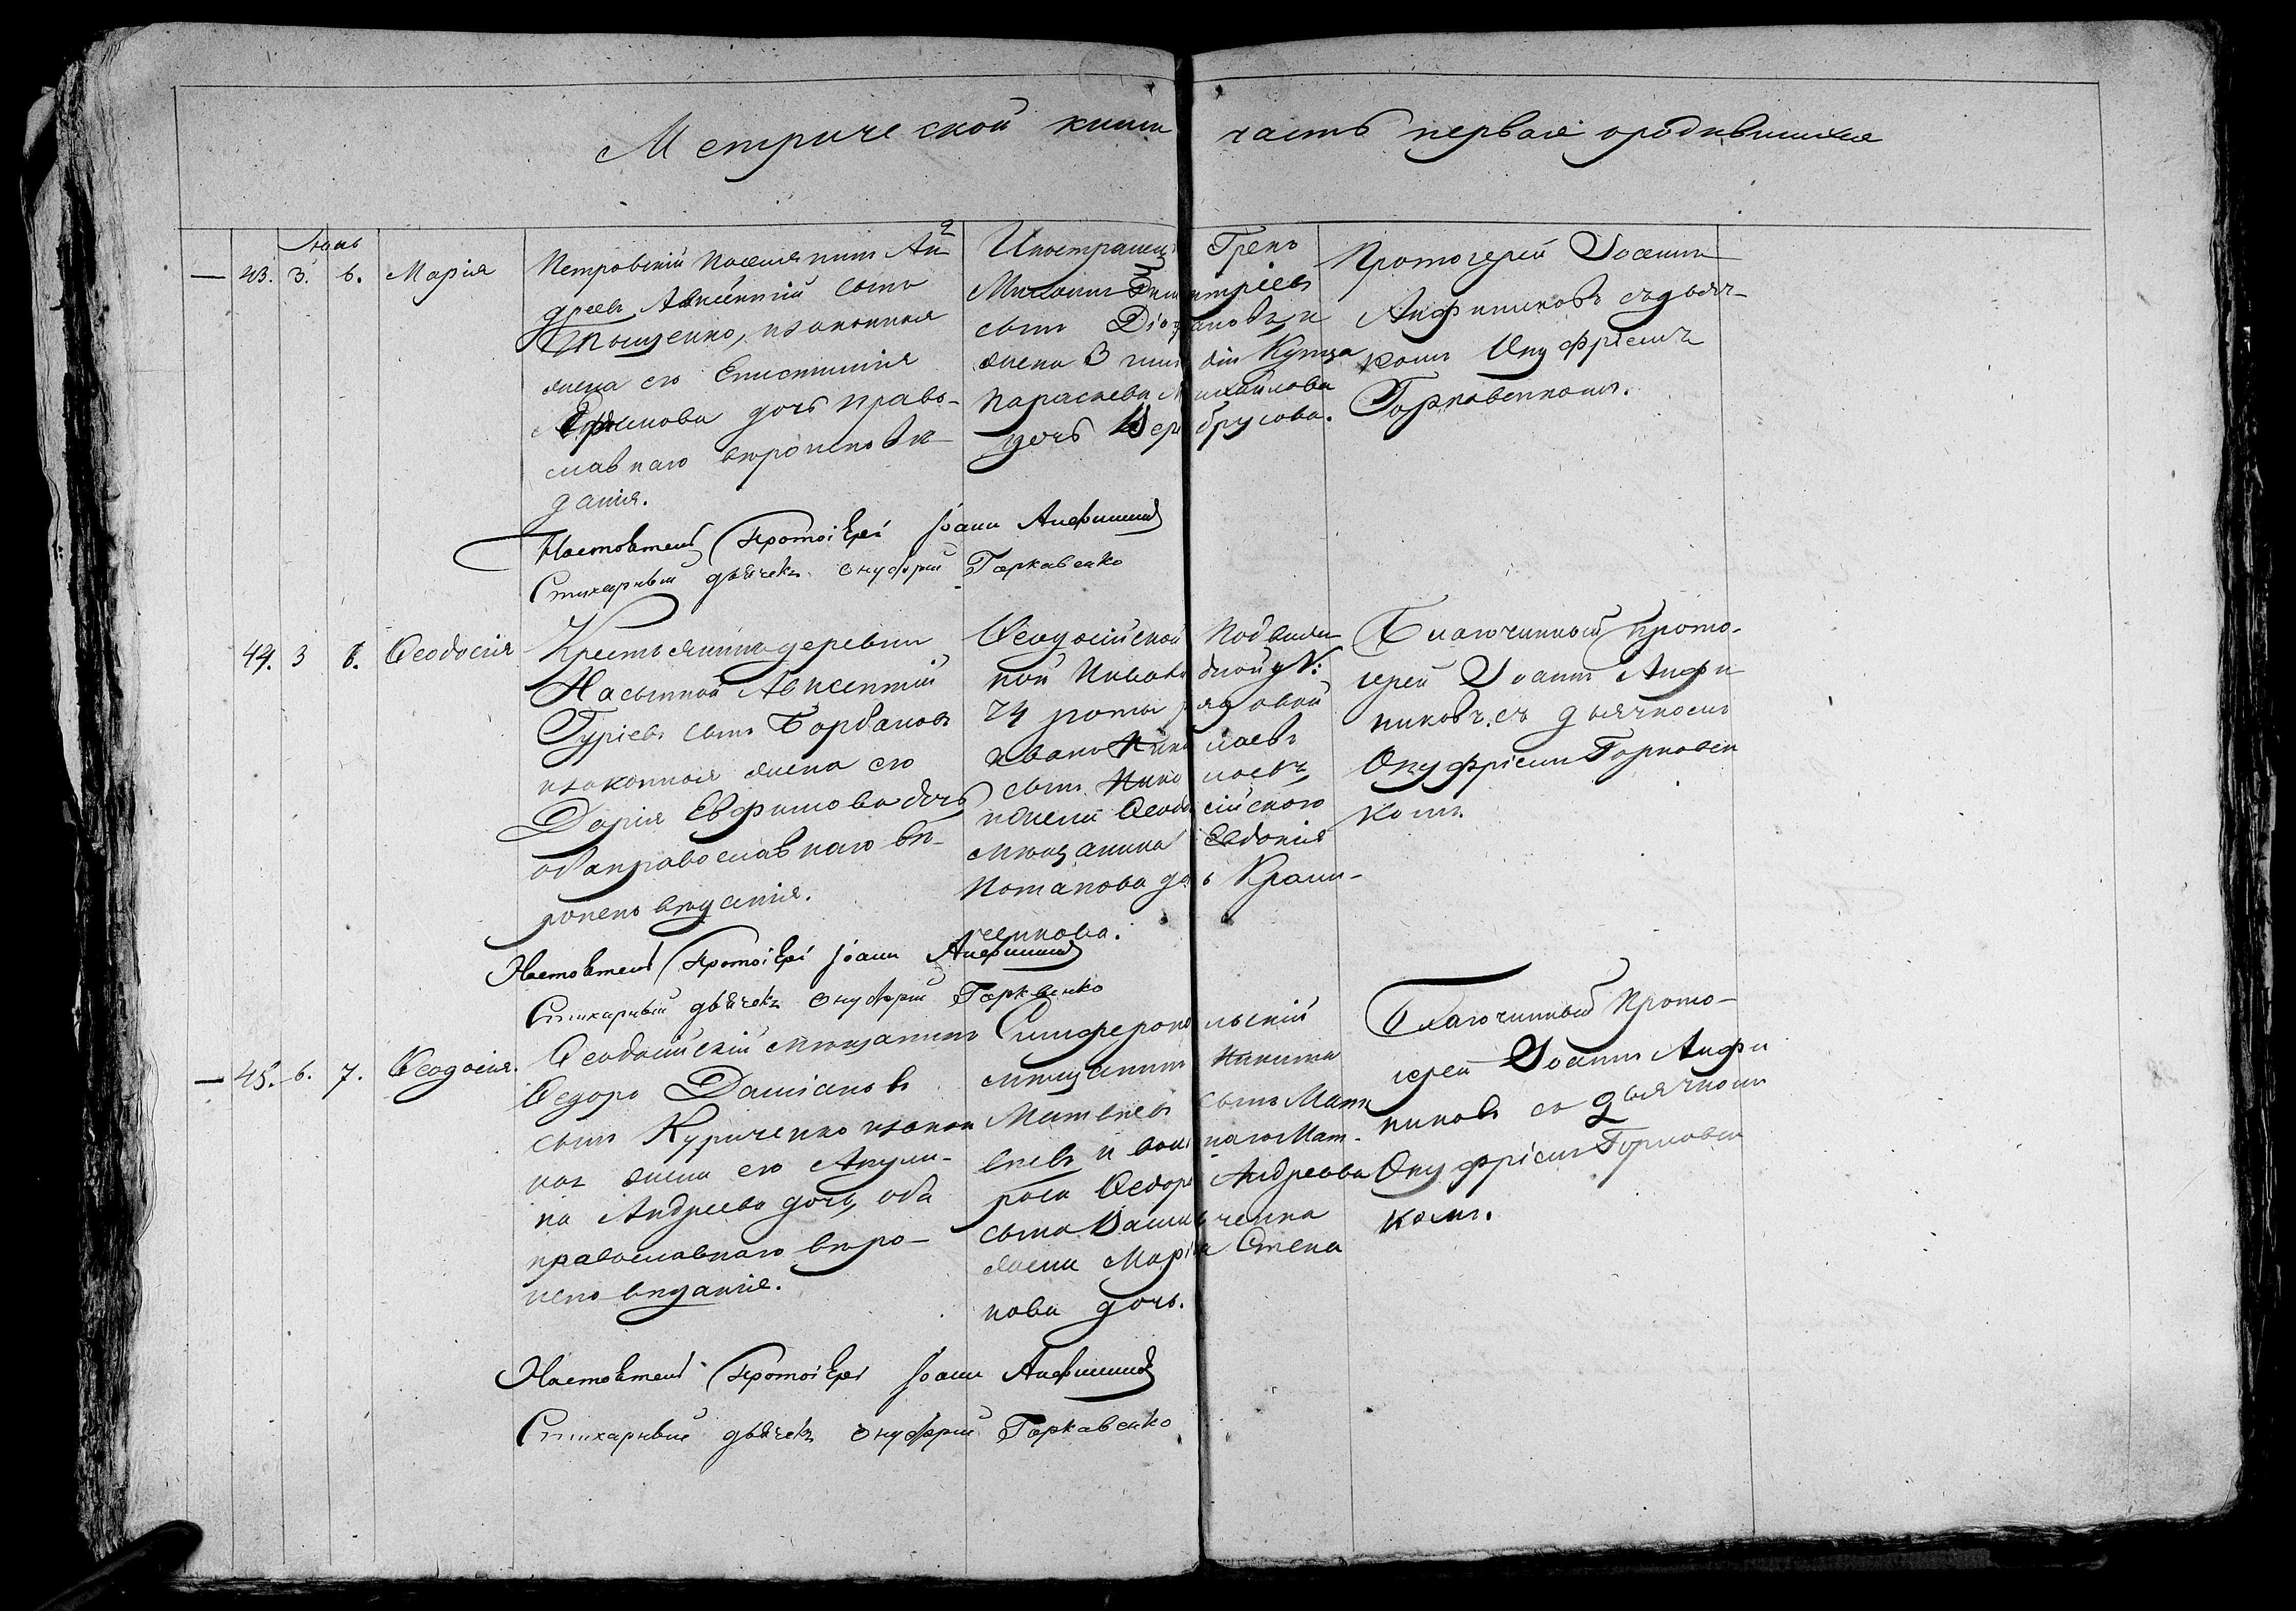 Метрической книги часть первая о родившихся
Іюнь
— 43. 3. 6. Марія
Петровскій поселянинъ Ан-
дреевъ Авксентій сынъ
Тощенко, изаконная
жена его Епистимія
Ефимова дочь право-
славнаго вѣроисповѣ-
данія.
Иностранецъ Грекъ
Михаилъ Димитріевъ
сынъ
жена 3 гильдіи Купца
Параскева Михайлова
дочь
Протоіерей Іоаннъ
Анфиниковъ съ дьяч-
комъ Онуфріемъ
Горкавенкомъ.
Настоятель Протоіерей Іоаннъ Анфиниковъ
Стихарный дьячекъ Онуфрій Горкавенко
44. 3 6. Ѳеодосія
Крестьянинъ деревни
Насыпной Авксентій
Гуріевъ сынъ Борбаковъ
изаконная жена его
Дарія Евфимова дочь
оба православнаго вѣ-
роисповѣданія.
Ѳеодосійской подвиж
ной Инвалидной №:
24 роты рядовой
Иванъ Николаевъ
сынъ Николаевъ,
ижена Ѳеодосійскаго
мѣщанина Евдокія
Потапова дочь Крам-
ченкова.
Благочинный Прото-
іерей Іоаннъ Анфи
никовъ съ дьячкомъ
Онуфріемъ Горкавен
комъ.
Настоятель Протоіерей Іоаннъ Анфиниковъ
Стихарный дьячекъ Онуфрій Горкавенко
— 45. 6. 7. Ѳеодосія.
Ѳеодосійскій мѣщанинъ
Ѳедоръ Даміановъ
сынъ Куриченко изакон
ная жена его Акули-
на Андреева дочь, оба
православнаго вѣро-
исповѣданія.
Симферопольскій
мѣщанинъ Никита
Матвѣевъ сынъ Матв
вѣевъ и вольнаго Мат-
роса Ѳедора Андреева
сына
жена Марія Степа
нова дочь.
Благочинный Прото-
іерей Іоаннъ Анфи
никовъ съ дьячкомъ
Онуфріемъ Горкавен
комъ.
Настоятель Протоіерей Іоаннъ Анфиниковъ
Стихарный дьячекъ Онуфрій Горкавенко